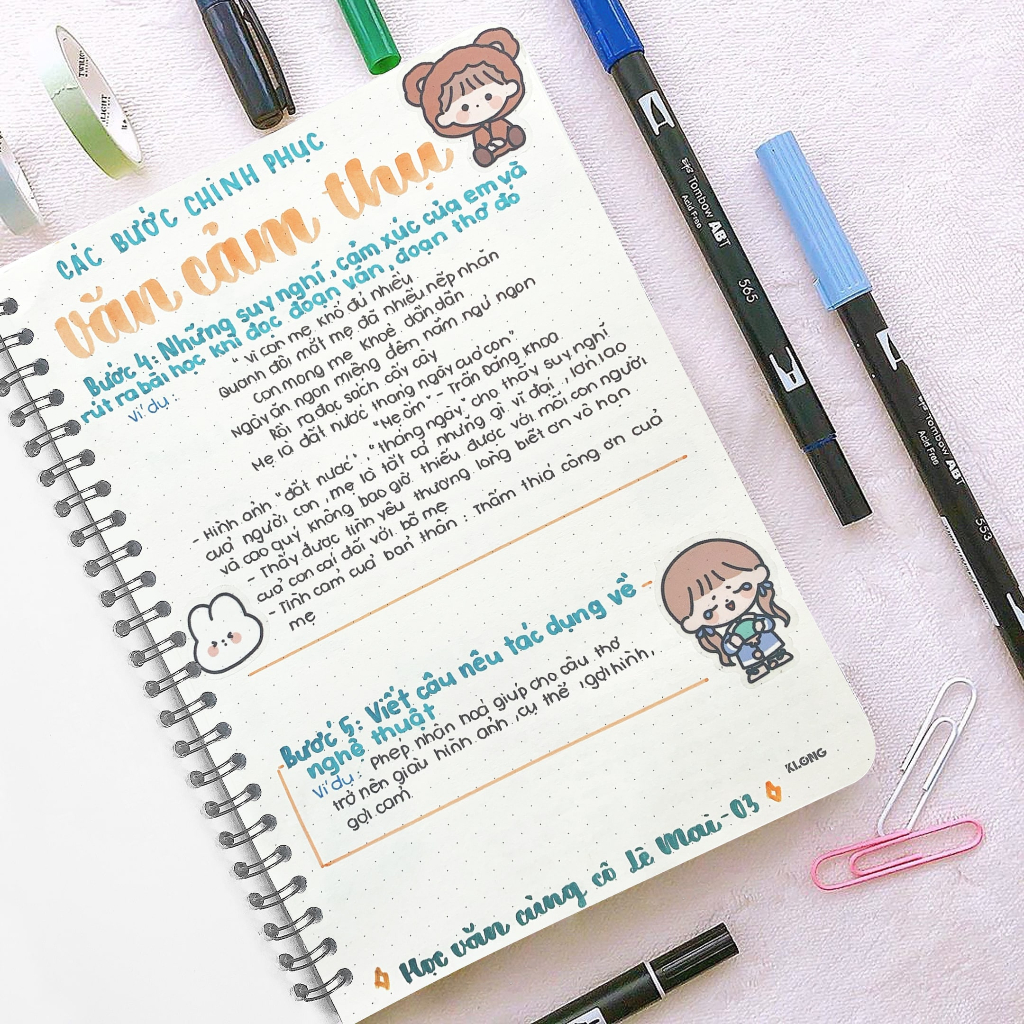 CÁC BƯỚC CHINH PHỤC
văn cảm thụ
Bước 4: Những suy nghĩ, cảm xúc của em và
rút ra bài học khi đọc đoạn văn, đoạn thơ đó
Ví dụ :
" Vì con mẹ khổ đủ điều
Quanh đôi mắt mẹ đã nhiều nếp nhăn
Con mong mẹ khoẻ dần dần
Ngày ăn ngon miệng đêm nằm ngủ ngon
Rồi ra đọc sách cấy cày
Mẹ là đất nước tháng ngày của con"
"Mẹ ốm" - Trần Đăng Khoa
- Hình ảnh "đất nước", "tháng ngày" cho thấy suy nghĩ
của người con, mẹ là tất cả những gì vĩ đại, lớn lao
và cao quý không bao giờ thiếu được với mỗi con người
- Thấy được tình yêu thương, lòng biết ơn vô hạn
của con cái đối với bố mẹ
- Tình cảm của bản thân : Thấm thía công ơn của
mẹ
Bước 5: Viết câu nêu tác dụng về
nghệ thuật
Ví dụ : Phép nhân hoá giúp cho câu thơ
trở nên giàu hình ảnh, cụ thể, gợi hình,
gợi cảm
KLONG
Học văn cùng cô Lê Mai - 03
Tombow ABT
Acid Free
565
Tombow ABT
Acid Free
553